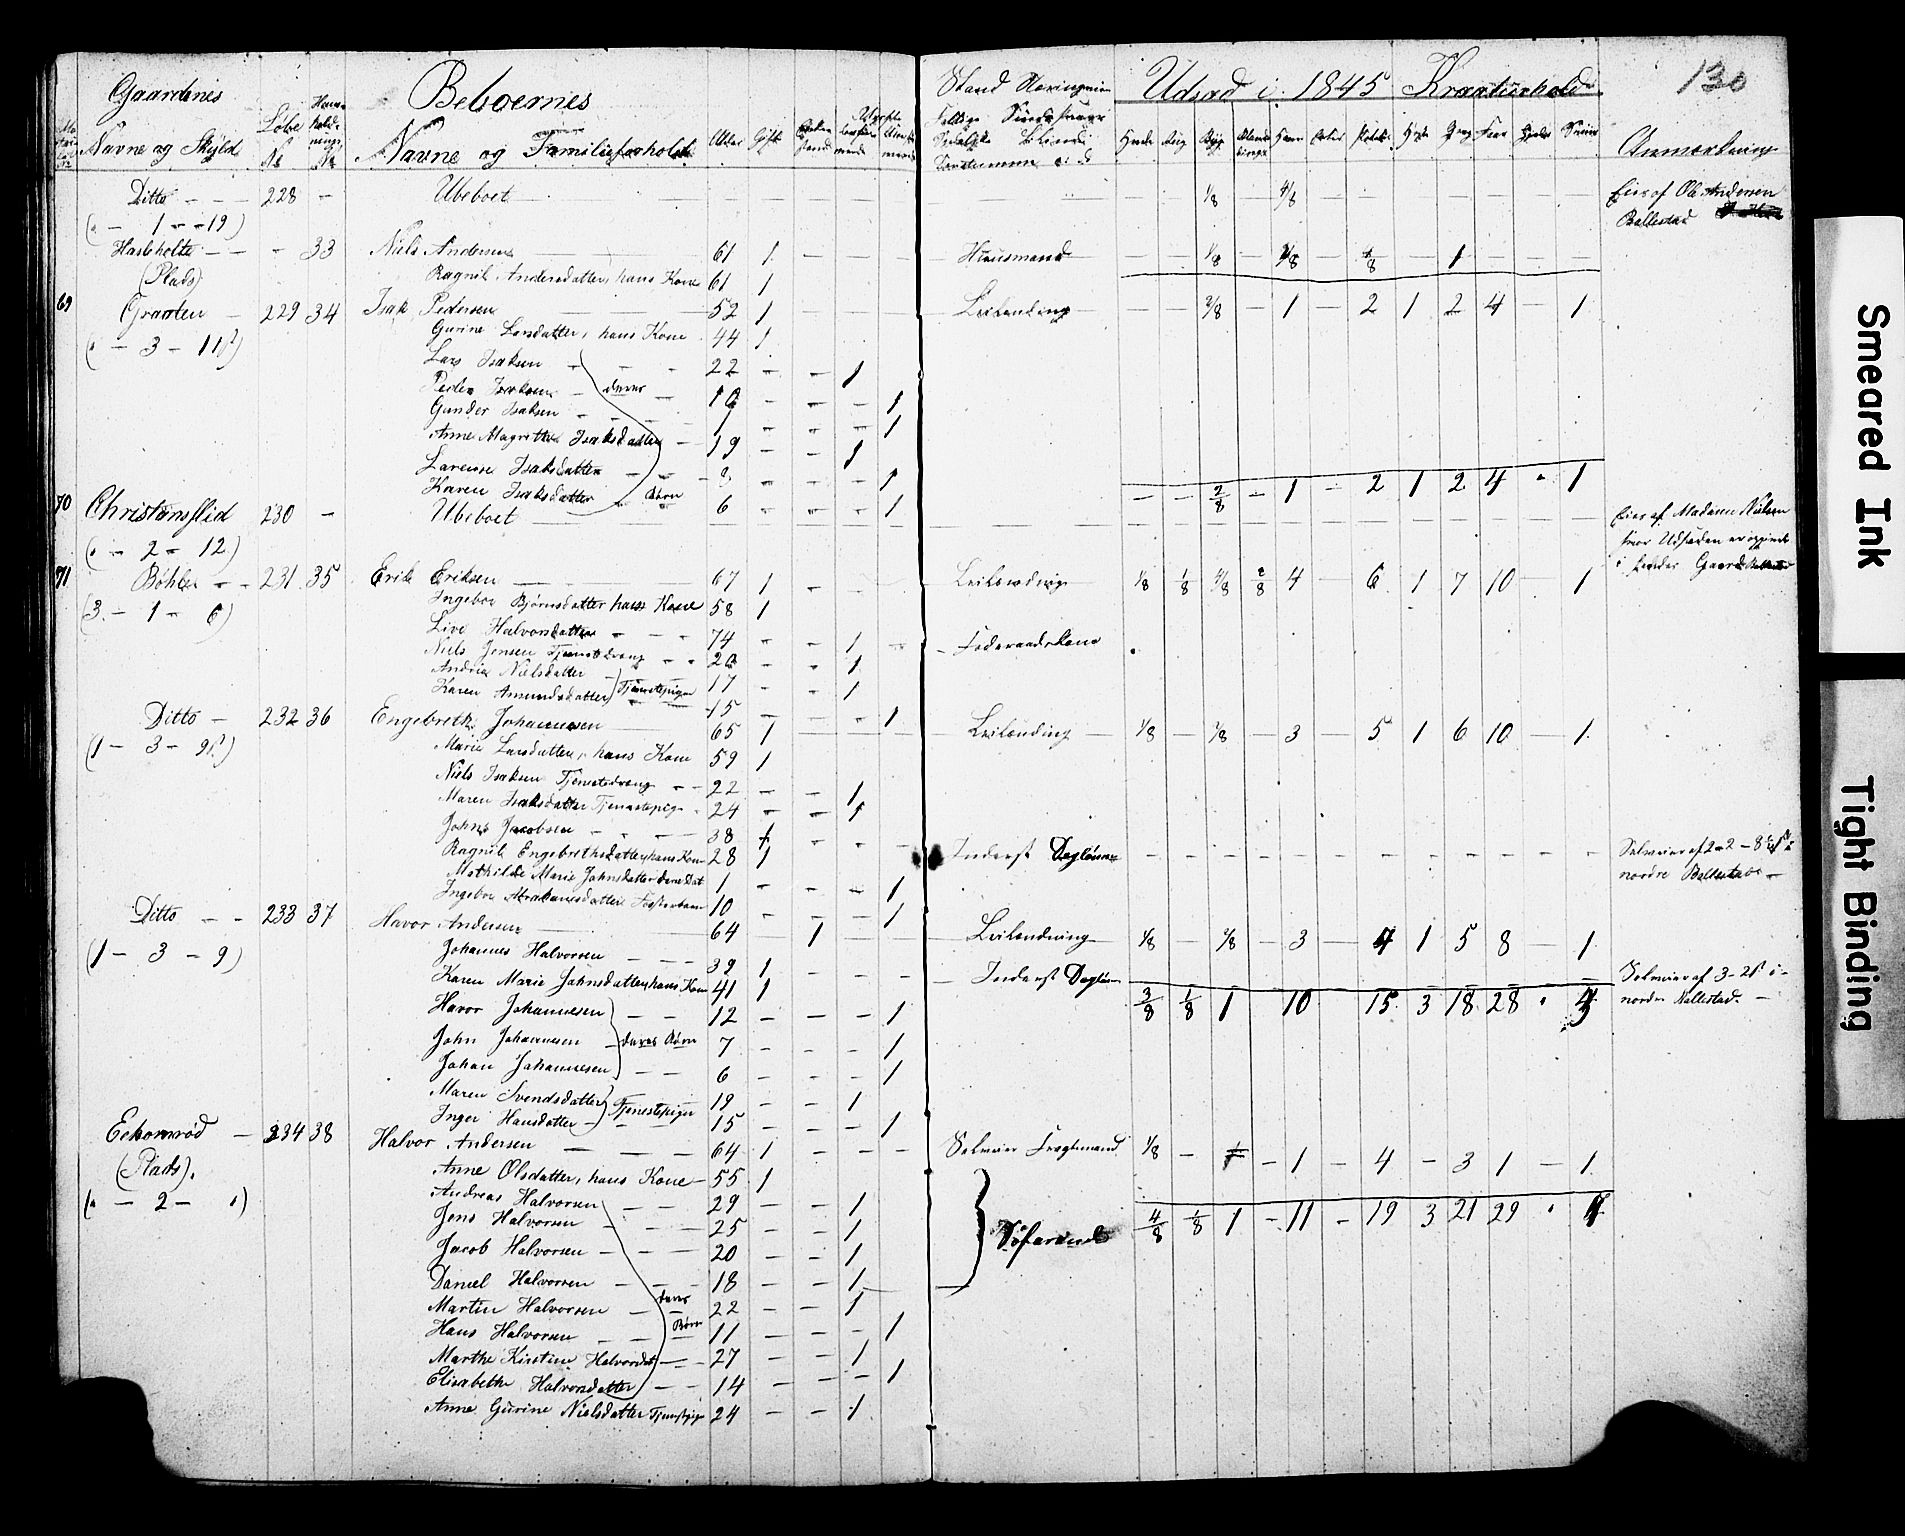 130
Gaardenes
Navne og Skyld
Løbe No
Beboernes
Navne og Familieforhold
Alder Gift
Udsæd i 1845 Kreaturhold
Anmærkning
Ditto - - - 228 - Ubeboet - - 1/8 - 4/8 - - - - - - Eies af Ole Andersen
( - 1 - - 19) Ballestad
Hasleholte - - - 33 Niels Andersen 61 1 - - - - Huusmand - - 1/8 - - 1 - - -
(Plads) Ragnil Andersdatter, hans Kone 61 1
69 Graaten - 229 34 Isak Pedersen 52 1 - - - - Leilending - - 2/8 - 1 - 2 1 2 4 - 1
( - 3 - 11) Gurine Larsdatter, hans Kone 44 1
Lars Isaksen - - - 22 - - 1
Peder Isaksen - deres - - - - 1
Gunder Isaksen - - - - - - 1
Anne Magrethe Isaksdatter - 19 - - 1
Larense Isaksdatter - - - - - 1
Karen Isaksdatter - Børn 6 - - - 1
- - 2/8 - 1 - 2 1 2 4 - 1
70 Christansslid 230 - Ubeboet - - - - - - - - - - - - Eies af Madam Nielsen
( - 2 - 12) hvor Udsæden er
71 Böhler - - 231 35 Erik Eriksen 67 1 - - - Leilending 1/8 1/8 2/8 4 - 6 1 7 10 - 1
(3 - 1 - 6) Ingebor Bjørnsdatter hans Kone 58 1
Live Halvorsdatter - - - 74 - - 1 - Føderaadskone
Niels Jensen Tjenestedreng - - 20 - - 1
Andrea Nielsdatter - 17 - - 1
Karen Amundsdatter Tjenestepiger 15 - - - 1
Ditto - 232 36 Engebreth Johannesen 65 1 - - - Leilending - 1/8 - - 3 - 5 1 6 10 - 1
(1 - 3 - 9) Marie Larsdatter, hans Kone 59 1
Niels Isaksen Tjenestedreng - - 22 - - 1
Maren Isaksdatter Tjenestepige - 24 - - 1
Johns Jacobsen - - - - 38 1 - - - Inderst Dagløner - - - - - - - - - - - - Selveier af 2 - 2 - 8
Ragnil Engebrethsdatter, hans Kone 28 1 nordre Ballestad -
Mathilde Marie Johnsdatter deres Dat 1 - - - 1
Ingebor Abrahamsdatter Fosterbarn 10 - - - 1
Ditto - - 233 37 Havor Andersen 64 - 1 - - - Leilending 1/8 - 3 - 4 1 5 8 - 1
(1 - 3 - 9) Johannes Halvorsen - - - 39 1 - - - - Inderst Dagløn Selveier af 3 - 2
Karen Marie Jahnsdatter, hans Kone 41 1 3/8 1/8 1 10 15 3 18 28 nordre Ballestad. -
Havor Johannesen - - 12 - - - 1
John Johannesen - deres Børn 7 - - - 1
Johan Johannesen - - 6 - - - 1
Maren Svendsdatter Tjenestepiger 19 - - 1
Inger Hansdatter - - - 15 - - - 1
Eekornrød - 234 38 Halvor Andersen - - - 64 1 - - - Selveier Fragtmand 1/8 - - 1 - 4 - 3 1 - 1
(Plads). Anne Olsdatter, hans Kone - 55 1
( - 2 - ) Andreas Halvorsen - - 29 - - 1
Jens Halvorsen - - - 25 - - 1 Søfarende 4/8 1/8 1 - 11 - 19 3 21 29
Jacob Halvorsen - - - 20 - - 1
Daniel Halvorsen - - - 18 - - 1
Martin Halvorsen - deres 22 - - 1
Hans Halvorsen - - Børn 11 - - - 1
Marthe Kirstine Halvorsdat - - 27 - - 1
Elisabethe Halvorsdatter - - 14 - - - 1
Anne Gurine Nielsdatter Tjenstpige 24 - - 1
Smeared Ink
Tight Binding